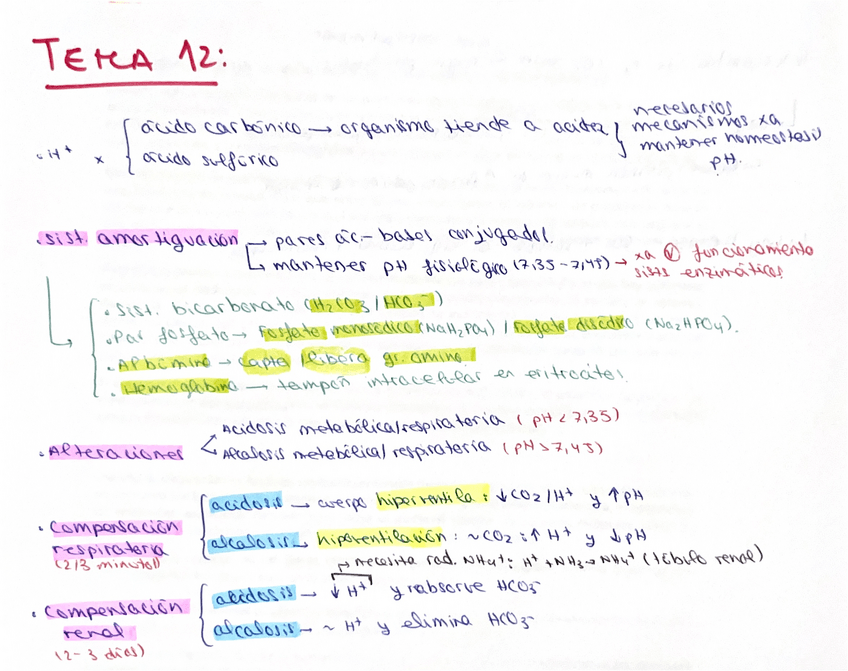 TEMA 12:
· H⁺ x { ácido carbónico → organismo tiende a acidez } necesarios mecanismos xa mantener homeostasis pH.
ácido sulfúrico
· sist. amortiguación → pares ác-bases conjugados.
↳ mantener pH fisiológico (7,35-7,45) → xa funcionamiento sists enzimáticos
· sist. bicarbonato (H₂CO₃ / HCO₃⁻)
· Par fosfato → Fosfato monosódico (NaH₂PO₄) / fosfato disódico (Na₂HPO₄).
· Albúmina → capta / libera gr. amino
· Hemoglobina → tampón intracelular en eritrocitos.
· Alteraciones
Acidosis metabólica/respiratoria (pH < 7,35)
Alcalosis metabólica/respiratoria (pH > 7,45)
· compensación respiratoria (2/3 minutos)
acidosis → cuerpo hiperventila: ↓CO₂/H⁺ y ↑pH
alcalosis → hipoventilación: ~CO₂: ↑H⁺ y ↓pH
↱ necesita rad. NH₄⁺: H⁺ + NH₃ → NH₄⁺ (túbulo renal)
· compensación renal (2-3 días)
acidosis → ↓H⁺ y rabsorve HCO₃⁻
alcalosis → ~ H⁺ y elimina HCO₃⁻